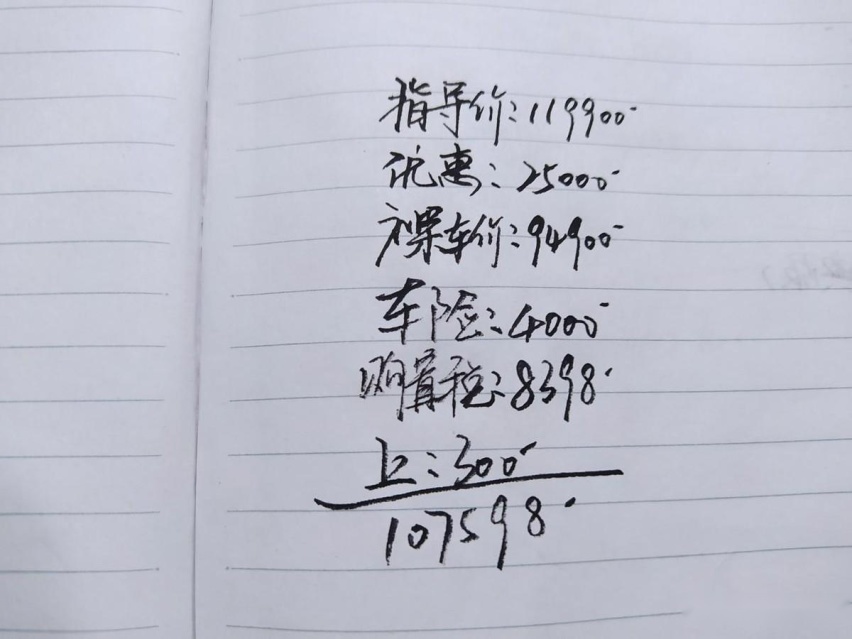 指导价:119900
优惠:25000
裸车价:94900
车险:4000
购置税:8398
上:300
107598